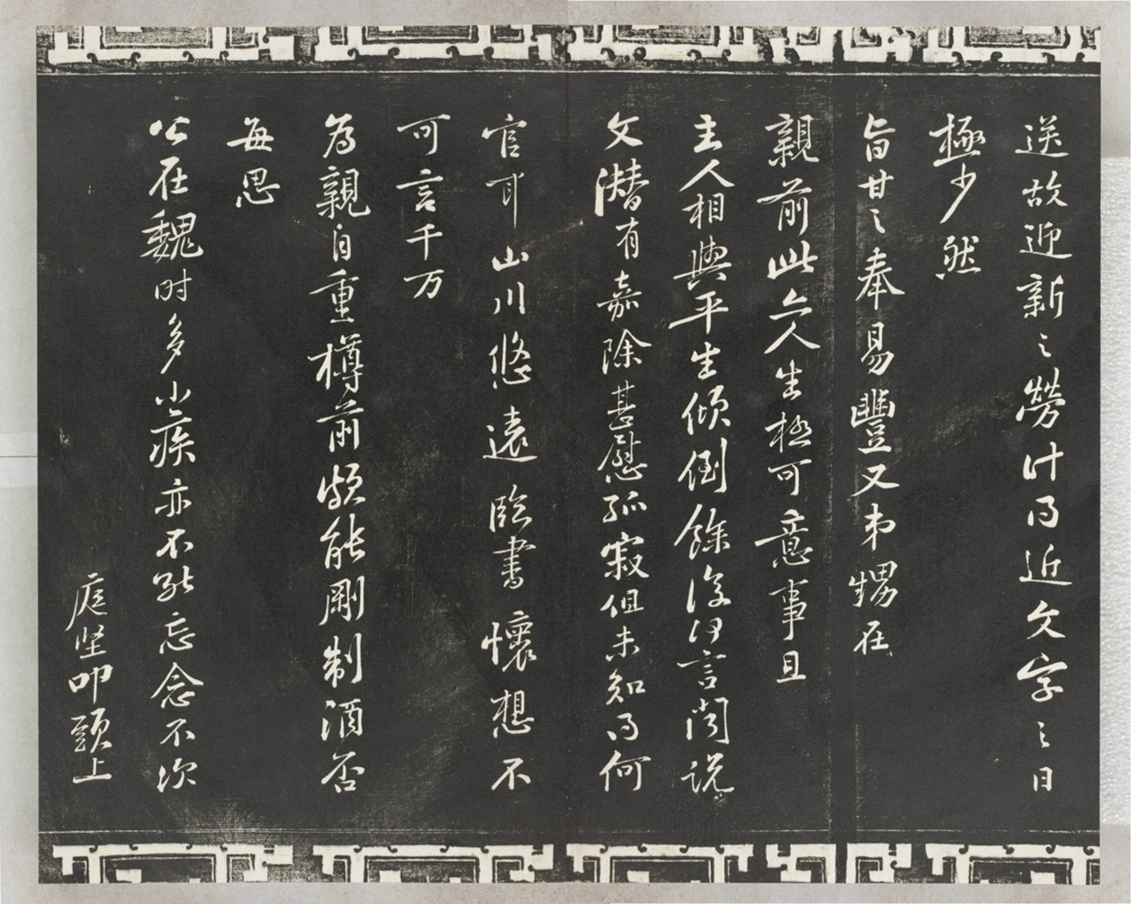 送故迎新々勞計乃近文字之日
極少然
旨甘之奉易豐又弟甥在
親前此六人生極可意事且
主人相與平生傾倒餘復何言聞說
文潛有嘉除甚慰孤寂但未知得何
官耳山川悠遠臨書懷想不
可言千万
為親自重樽前頗能剛制酒否
每思
公在魏时多小疾亦不能忘念不次
庭坚叩頭上